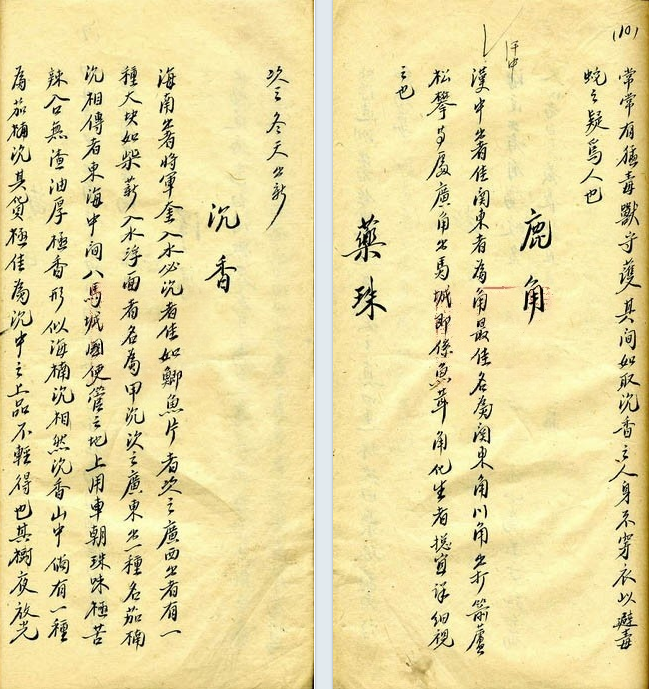 次之冬天出新
沉香
海南出者將軍奎入水必沉者佳如鯽魚片者次之廣西出者有一
種大块如柴薪入水浮面者名為甲沉次之廣東出一種名茄楠
沉相傳者東海中间八馬城國使管之地上用車朝珠味極苦
辣含無渣油厚極香形似海楠沉相然沉香山中倘有一種
為茄楠沉其貨極佳為沉中之上品不輕得也其樹夜放光
(10)
常常有猛毒獸守護其间如取沉香之人身不穿衣以避毒
蛇之疑爲人也
鹿角
漢中出者佳関東者為角最佳名為関東角川角出打箭蘆
松攀廣角出馬城即係魚茸角化生者揔宜详细視
之也
藥珠